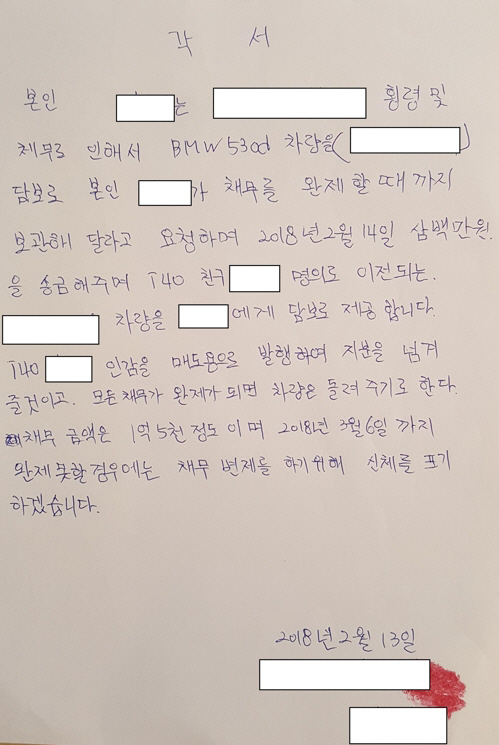 각 서
본인 는 횡령 및
채무로 인해서 BMW530d 차량을( )
담보로 본인 가 채무를 완제할 때까지
보관해 달라고 요청하며 2018년 2월 14일 삼백만원.
을 송금해주며 I40 친구 명의로 이전되는.
차량을 에게 담보로 제공합니다.
I40 인감을 매도용으로 발행하여 지분을 넘겨
줄것이고. 모든채무가 완제가 되면 차량은 돌려주기로 한다.
채무 금액은 1억 5천 정도 이며 2018년 3월 6일 까지
완제못할경우에는 채무 변제를 하기위해 신체를 포기
하겠습니다.
2018년 2월 13일